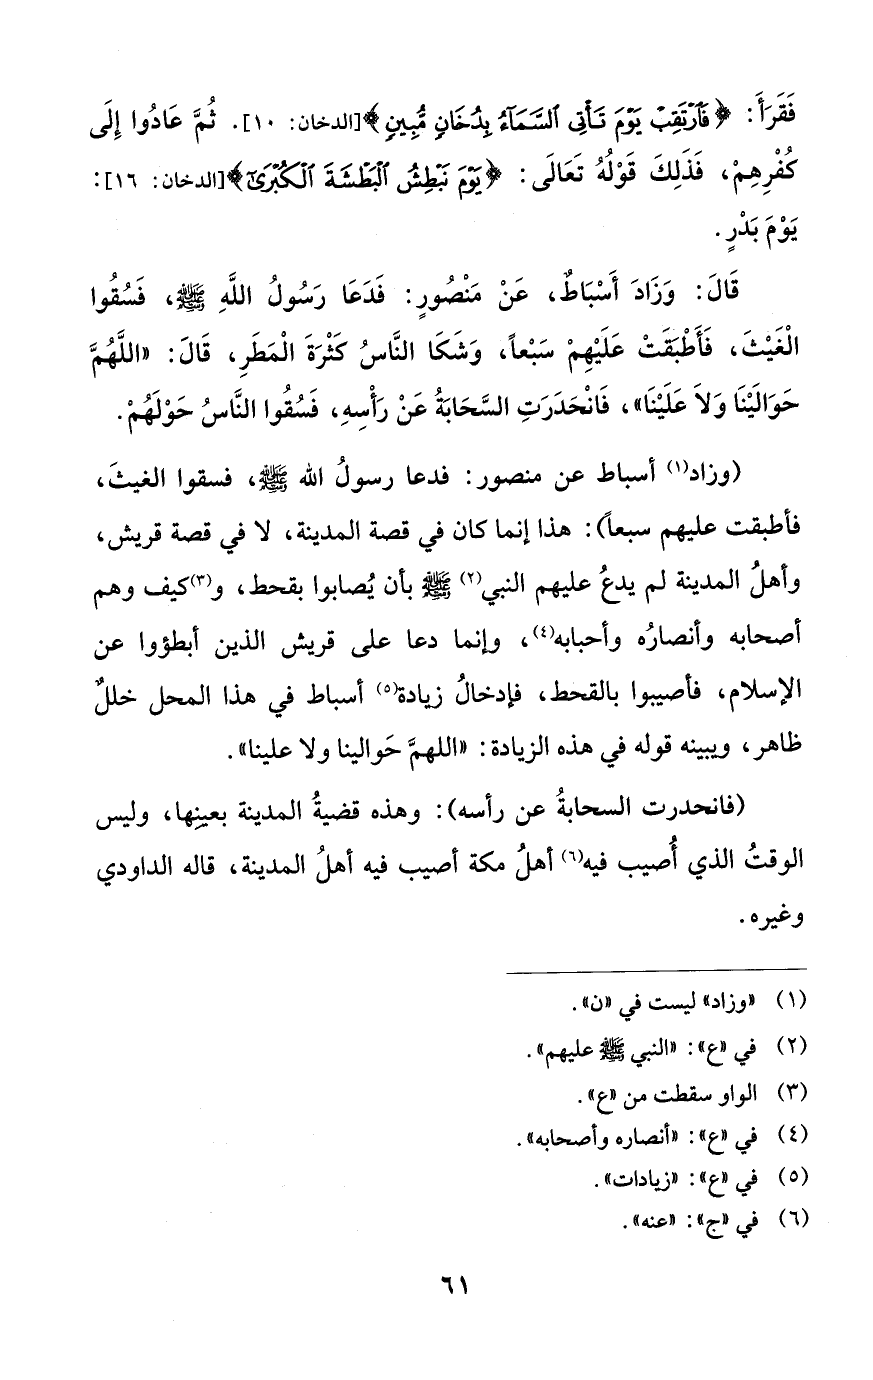 فَقَرَأَ: ﴿فَٱرْتَقِبْ يَوْمَ تَأْتِى ٱلسَّمَآءُ بِدُخَانٍ مُّبِينٍ﴾[الدخان: ١٠]. ثُمَّ عَادُوا إِلَى
كُفْرِهِمْ، فَذَلِكَ قَوْلُهُ تَعَالَى: ﴿يَوْمَ نَبْطِشُ ٱلْبَطْشَةَ ٱلْكُبْرَىٰٓ﴾[الدخان: ١٦]:
يَوْمَ بَدْرٍ.
قَالَ: وَزَادَ أَسْبَاطٌ، عَنْ مَنْصُورٍ: فَدَعَا رَسُولُ اللَّهِ ﷺ، فَسُقُوا
الْغَيْثَ، فَأَطْبَقَتْ عَلَيْهِمْ سَبْعاً، وَشَكَا النَّاسُ كَثْرَةَ الْمَطَرِ، قَالَ: «اللَّهُمَّ
حَوَالَيْنَا وَلاَ عَلَيْنَا»، فَانْحَدَرَتِ السَّحَابَةُ عَنْ رَأْسِهِ، فَسُقُوا النَّاسُ حَوْلَهُمْ.
(وزاد(١) أسباط عن منصور: فدعا رسولُ الله ﷺ، فسقوا الغيثَ،
فأطبقت عليهم سبعاً): هذا إنما كان في قصة المدينة، لا في قصة قريش،
وأهلُ المدينة لم يدعُ عليهم النبي(٢) ﷺ بأن يُصابوا بقحط، و(٣)كيف وهم
أصحابه وأنصارُه وأحبابه(٤)، وإنما دعا على قريش الذين أبطؤوا عن
الإسلام، فأصيبوا بالقحط، فإدخالُ زيادة(٥) أسباط في هذا المحل خللٌ
ظاهر، ويبينه قوله في هذه الزيادة: «اللهمَّ حَوالينا ولا علينا».
(فانحدرت السحابةُ عن رأسه): وهذه قضيةُ المدينة بعينِها، وليس
الوقتُ الذي أُصيب فيه(٦) أهلُ مكة أصيب فيه أهلُ المدينة، قاله الداودي
وغيره.
(١) «وزاد» ليست في «ن».
(٢) في «ع»: «النبي ﷺ عليهم».
(٣) الواو سقطت من «ع».
(٤) في «ع»: «أنصاره وأصحابه».
(٥) في «ع»: «زيادات».
(٦) في «ج»: «عنه».
٦١